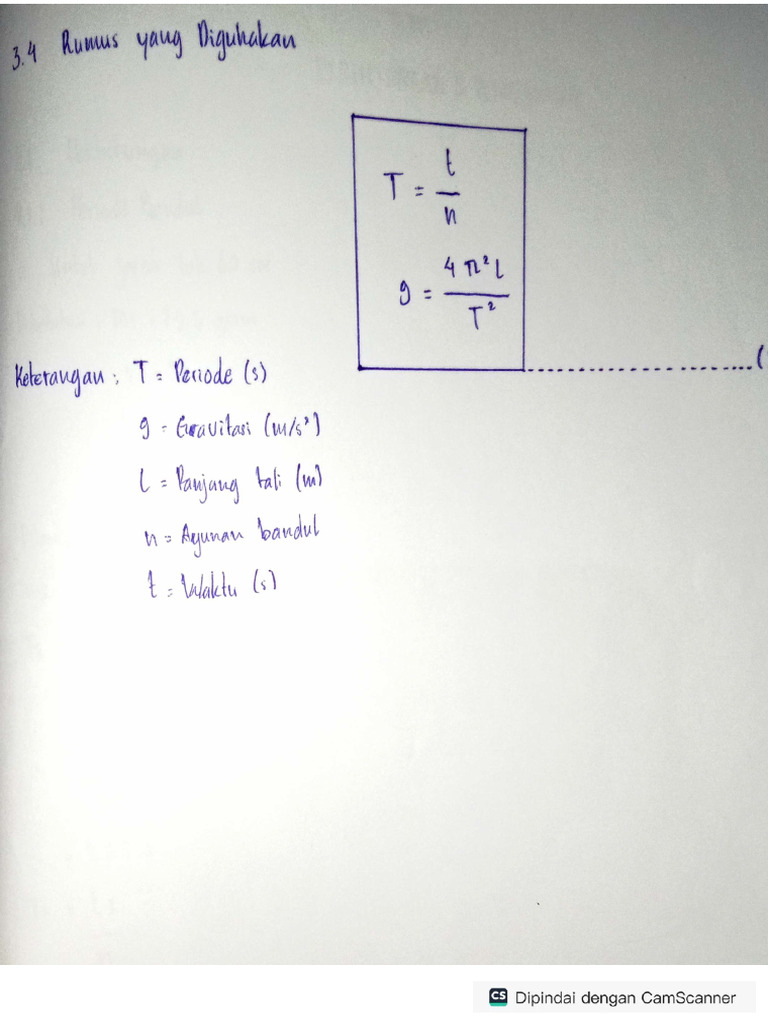 3.4 Rumus yang Digunakan
T = t/n
g = 4π²l/T²
..............................(
Keterangan : T = Periode (s)
g = Gravitasi (m/s²)
l = Panjang tali (m)
n = Ayunan bandul
t = Waktu (s)
CS Dipindai dengan CamScanner